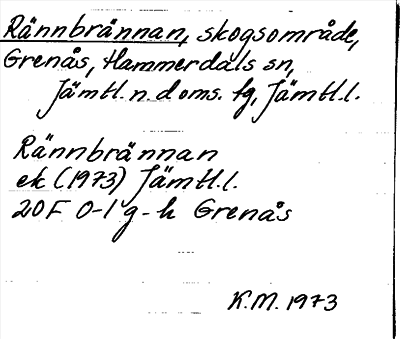 Rännbrännan, skogsområde,
Grenås, Hammerdals sn,
Jämtl. n. doms. tg, Jämtl. l.
Rännbrännan
ek (1973) Jämtl. l.
20F 0-1 g-h Grenås
K.M. 1973